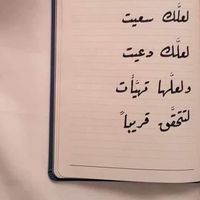 لعلَّك سعيت
لعلَّك دعيت
ولعلَّها تهيَّأت
لتتحقَّق قريباً